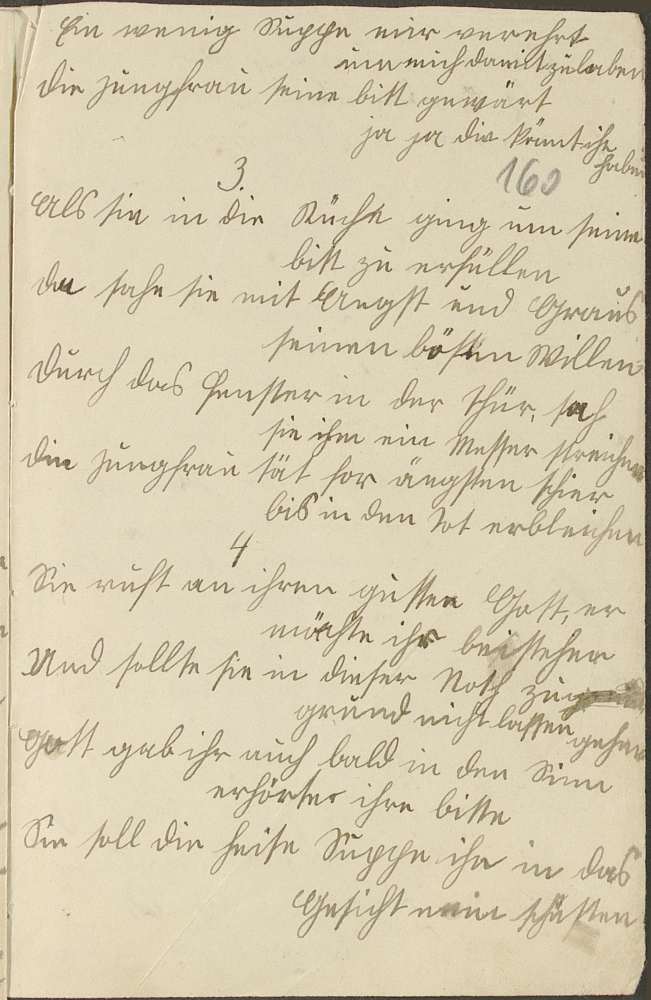 Ein wenig Suppe mir verehrt
um mich damit zu laben
die Jungfrau seine bitt gewärt
ja ja die könnt ihr
haben
3.
160
Als sie in die Küche ging um seine
bitt zu erfüllen
da sahe sie mit Angst und Graus
seinen bösen Willen
Durch das Fenster in der Thür, sah
sie ihm ein Messer streichen
die Jungfrau tät for ängsten schier
bis in den Tot erbleichen
4
Sie ruft an ihren guten Gott, er
möchte ihr beistehen
Und sollte sie in dieser Noth zu
grund nicht lassen gehen
Gott gab ihr auch bald in den Sinn
erhörte ihre bitte
Sie soll die heise Suppe ihn in das
Gesicht schütten